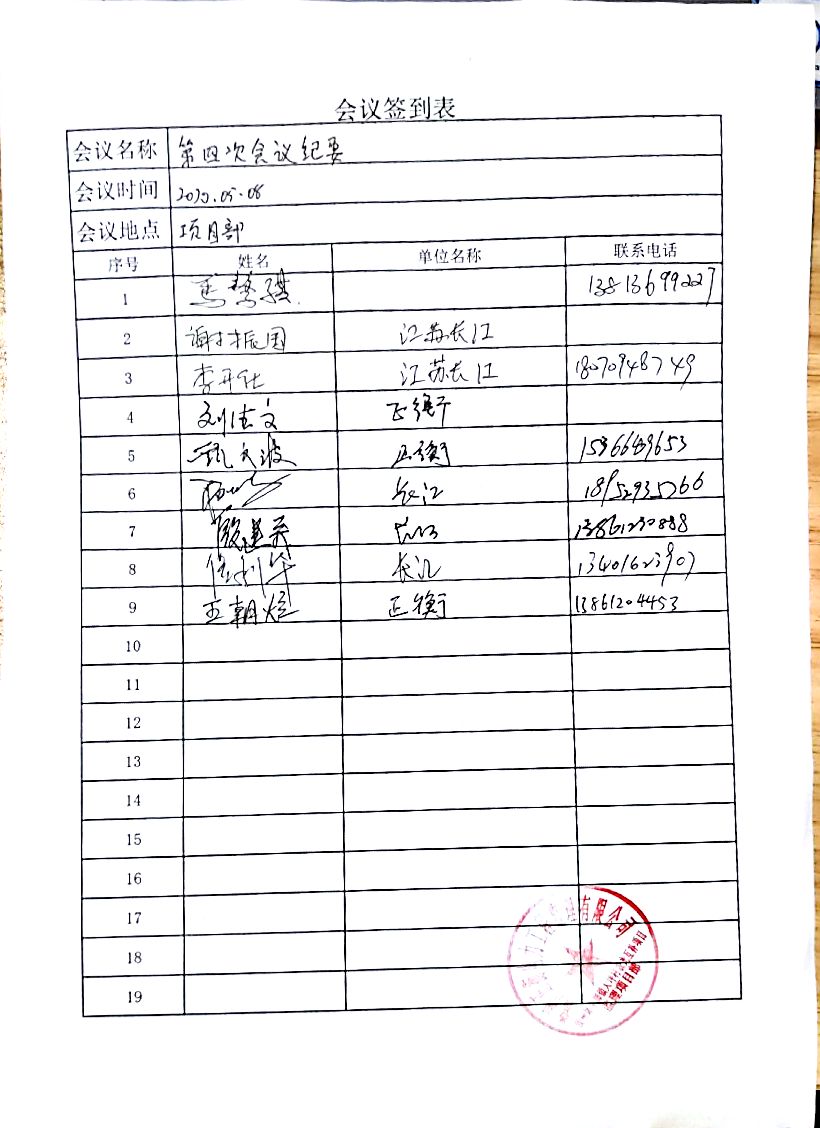 会议签到表
会议名称 第四次会议纪要
会议时间 2020.05.08
会议地点 项目部
序号 姓名 单位名称 联系电话
1 13813699227
2 谢振国 江苏长江
3 李开仕 江苏长江 18070948749
4 刘佳文 正衡
5 甄文波 正衡 15366489653
6 长江 18952935766
7 殷建荣 长江 13861230888
8 长江 13401623907
9 王朝煊 正衡 13861204453
10
11
12
13
14
15
16
17
18
19
有限公司